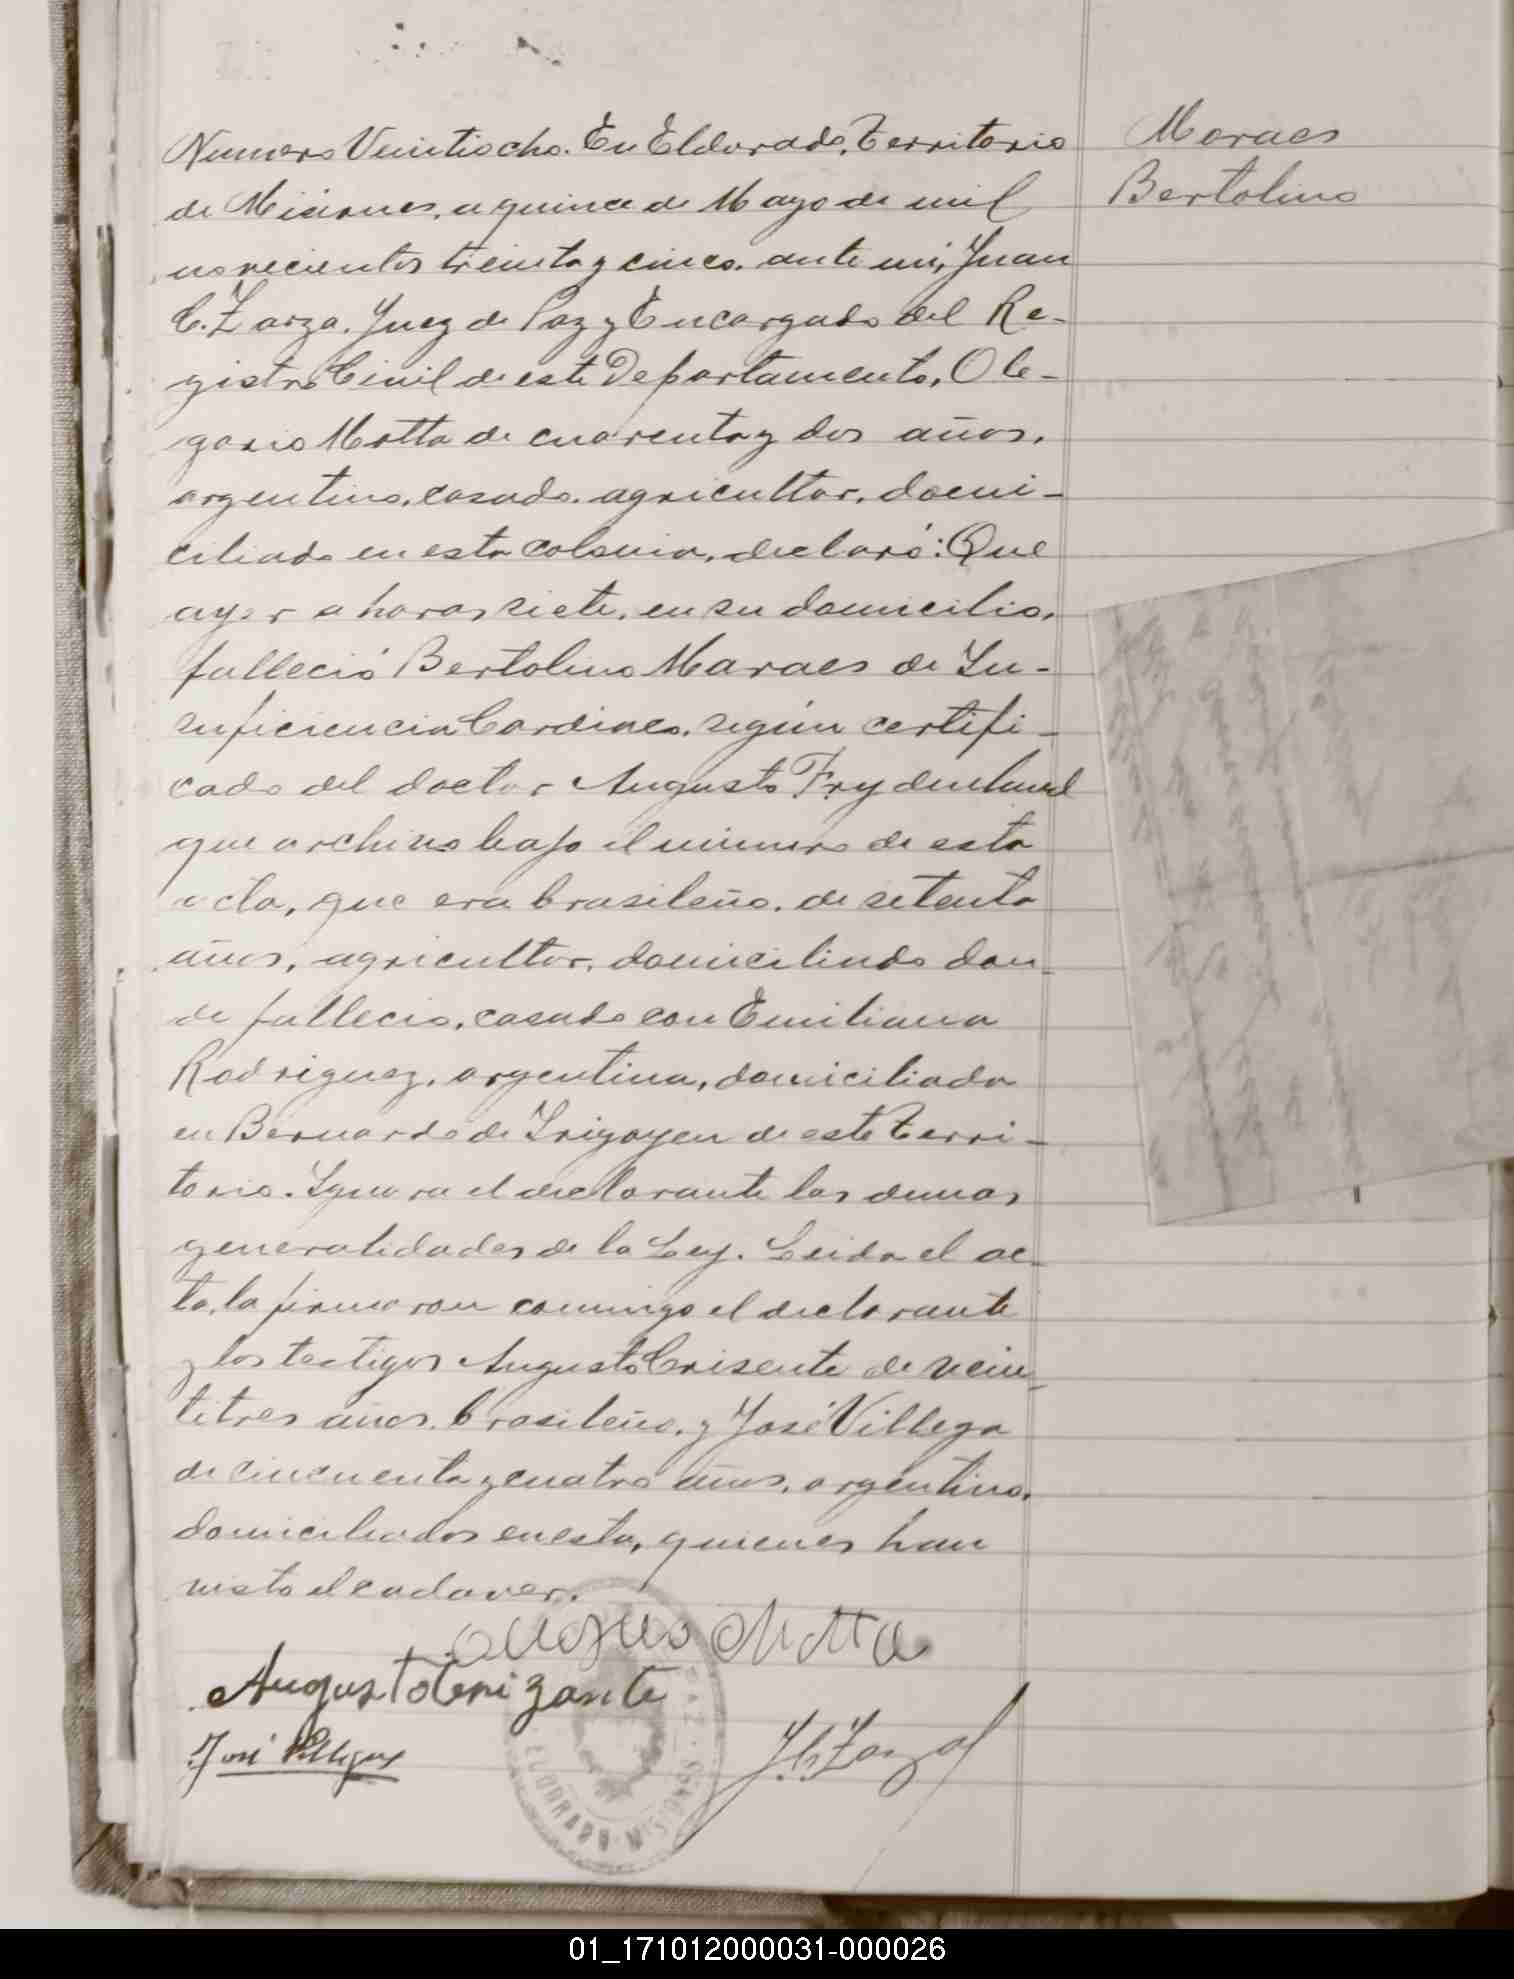 Moraes
Bertolino
Numero Veintiocho. En Eldorado, Territorio
de Misiones, a quince de Mayo de mil
novecientos treinta y cinco, ante mi, Juan
C. Zarza, Juez de Paz y Encargado del Re-
gistro Civil de este Departamento, Ole-
gario Motta de cuarenta y dos años,
argentino, casado, agricultor, domi-
ciliado en esta colonia, declaró: Que
ayer a horas siete, en su domicilio,
falleció Bertolino Moraes de In-
suficiencia Cardiaca, según certifi-
cado del doctor Augusto
que archivo bajo el numero de esta
acta, que era brasileño, de setenta
años, agricultor, domiciliado don-
de fallecio, casado con Emiliana
Rodriguez, argentina, domiciliada
en Bernardo de Irigoyen de este Terri-
torio. Ignora el declarante las demas
generalidades de la Ley. Leida el ac-
ta, la firmaron conmigo el declarante
y los testigos Augusto Crisente de vein-
titres años, brasileño, y José Villega
de cincuenta y cuatro años, argentino,
domiciliados en esta, quienes han
visto el cadaver.
Olegario Motta
Augusto Crizante
José Villega
J. C. Zarza
PAZ
ELDORADO MISIONES
01_171012000031-000026